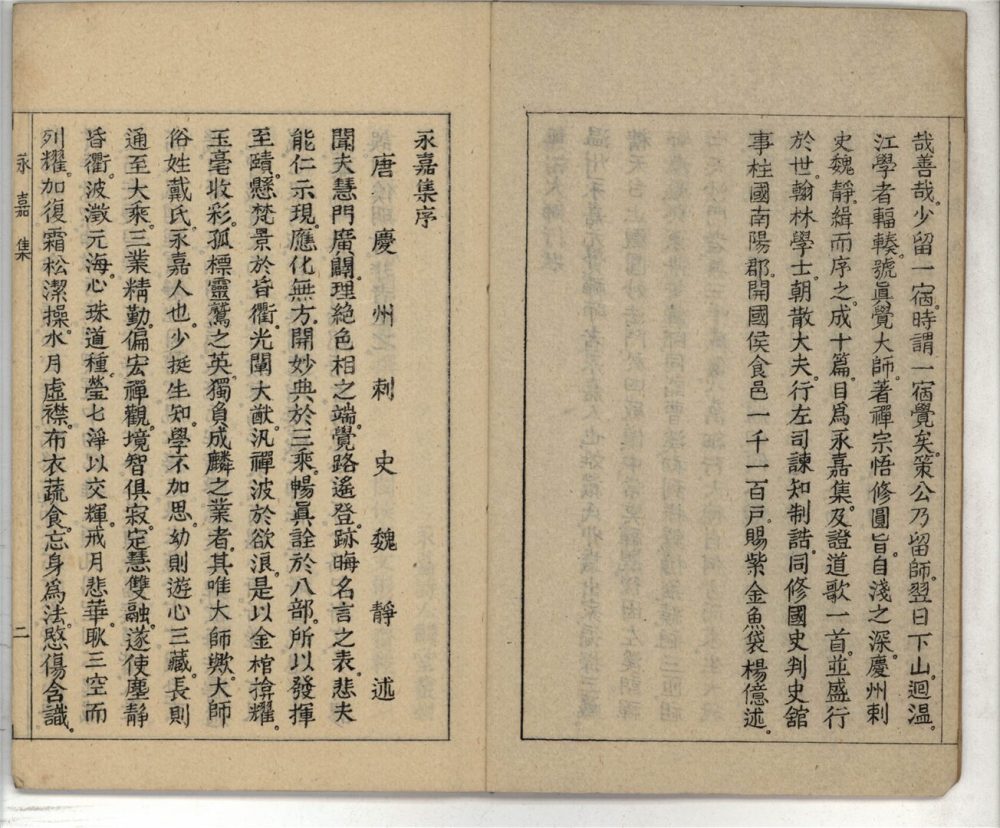 哉善哉。少留一宿。時謂一宿覺矣。策公乃留。師翌日下山。迴溫
江。學者輻輳。號眞覺大師。著禪宗悟修圓旨。自淺之深。慶州刺
史魏靜。緝而序之。成十篇。目爲永嘉集。及證道歌一首。並盛行
於世。翰林學士。朝散大夫。行左司諫。知制誥。同修國史。判史舘
事。柱國南陽郡。開國侯。食邑一千一百戶。賜紫金魚袋。楊億述。
永嘉集序
唐慶州刺史魏靜述
聞夫慧門廣闢。理絕色相之端。覺路遙登。跡晦名言之表。悲夫
能仁示現。應化無方。開妙典於三乘。暢眞詮於八部。所以發揮
至賾。懸梵景於昏衢。光闡大猷。汎禪波於欲浪。是以金棺揜耀。
玉毫收彩。孤標靈鷲之英。獨負成麟之業者。其唯大師歟。大師
俗姓戴氏。永嘉人也。少挺生知。學不加思。幼則遊心三藏。長則
通至大乘。三業精勤。偏宏禪觀。境智俱寂。定慧雙融。遂使塵靜
昏衢。波澂元海。心珠道種。瑩七淨以交輝。戒月悲華。耿三空而
列耀。加復霜松潔操。水月虛襟。布衣蔬食。忘身爲法。愍傷含識。
永嘉集
二